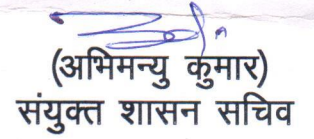 (अभिमन्यु कुमार)
संयुक्त शासन सचिव